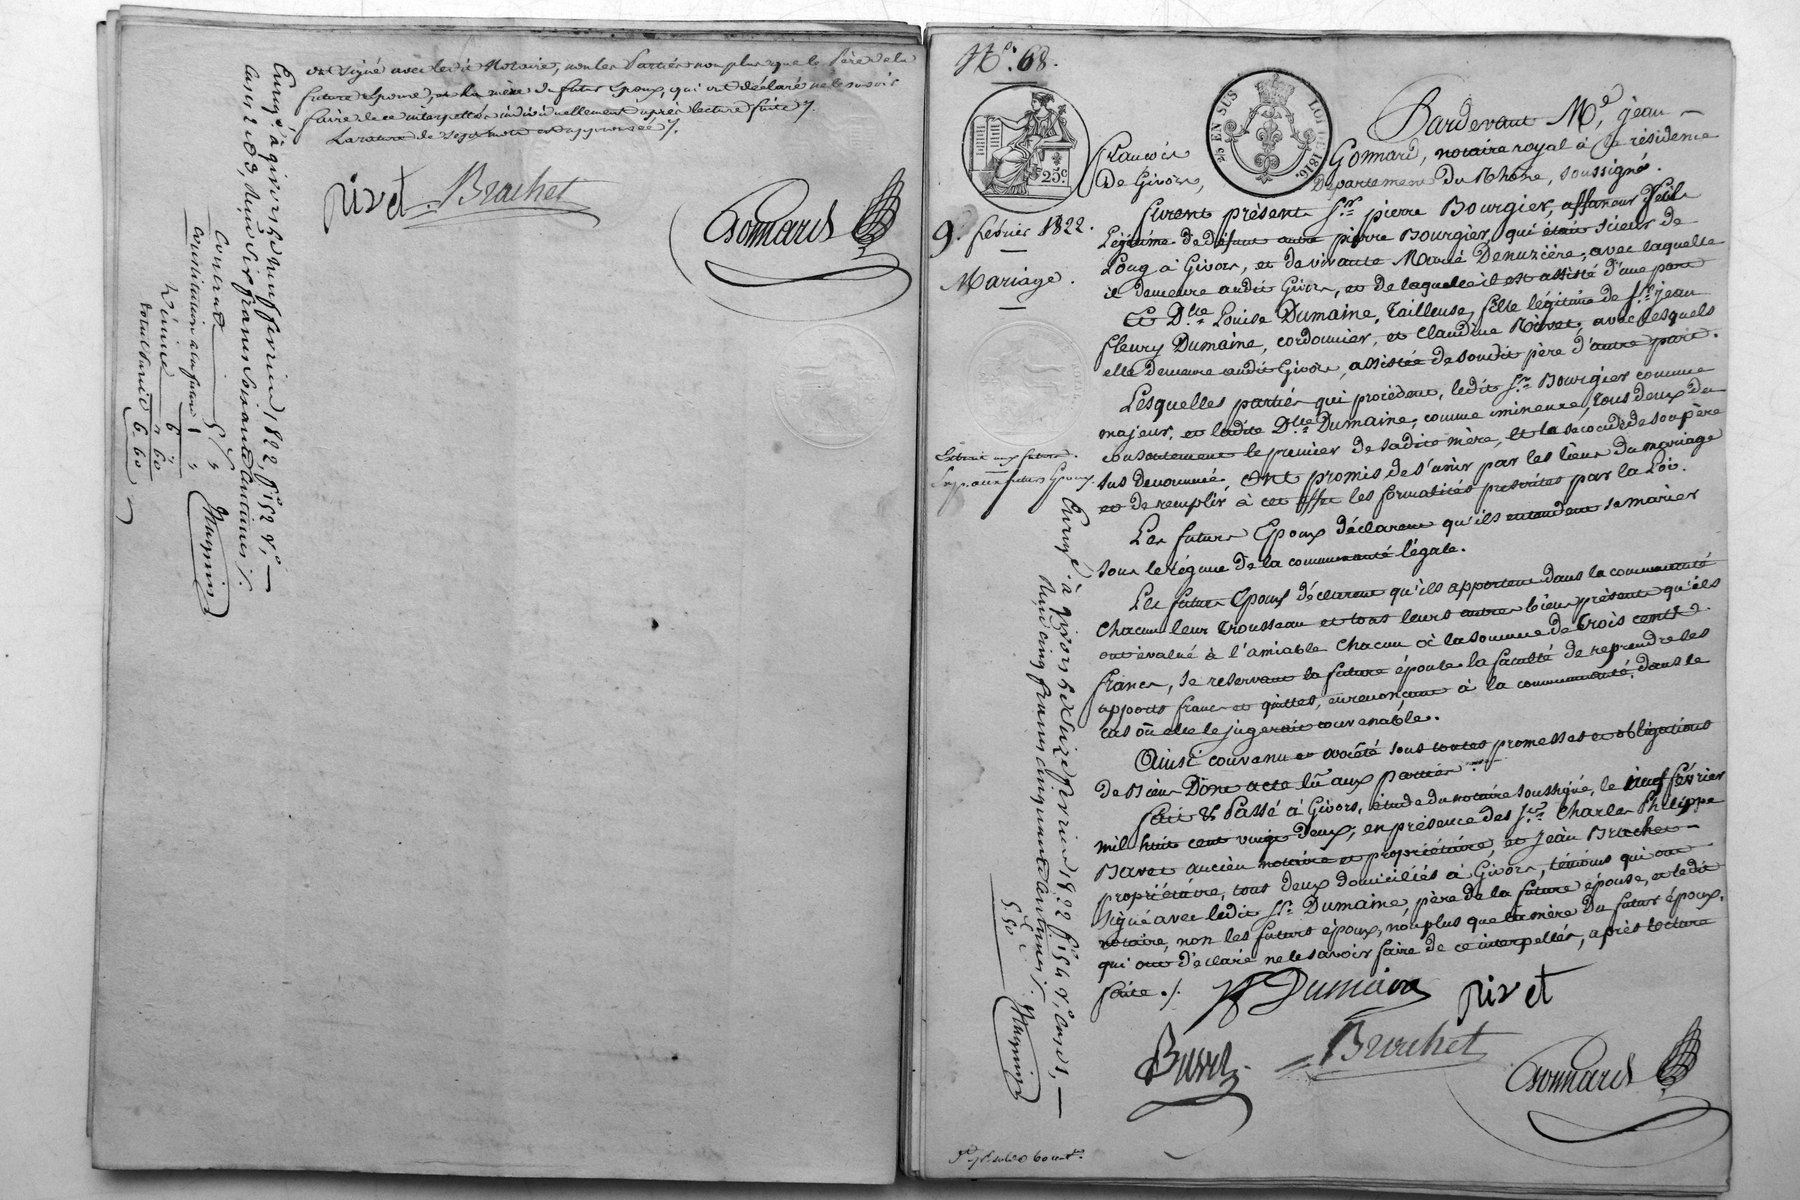 et signé avec ledit Notaire, non les Parties non plus que le Père de la
future Epouse, et la mère du futur Epoux, qui ont déclaré ne le savoir
faire de ce interpellés individuellement après lecture faite ./.
La rature de sept mots est approuvée ./.
Rivet. Brachet
Gonnard
Enreg.é à Givors le neuf février 1822, f.° 152 v.°
cases 2 et 3, Reçu six francs soixante centimes ./.
Contrat 5 "
Constitution au futur 1 "
6 "
Dixième " 60
Total 6. 60
N.° 68.
25.c
25 EN SUS
LOI DE 1816
Pardevant M.e Jean
Gonnard, notaire royal à la résidence
De Givors,
Département du Rhône, soussigné.
9. février 1822.
Mariage.
Furent présents S.r pierre Bourgier, affaneur fils
Légitime de défunt autre pierre Bourgier, qui était scieur de
Long à Givors, et de vivante Marie Denuzière, avec laquelle
il demeure audit Givors, et de laquelle il est assisté d'une part
Et D.lle Louise Dumaine, Tailleuse, fille légitime de S.r jean
fleury Dumaine, cordonnier, et Claudine Rivet, avec lesquels
elle demeure audit Givors, assistée de sondit père d'autre part.
Lesquelles parties qui procèdent, ledit S.r Bourgier comme
majeur, et ladite D.lle Dumaine, comme mineure, tous deux du
consentement le premier de sadite mère, et la seconde de son père
sus denommé, ont promis de s'unir par les liens du mariage
et de remplir à cet effet les formalités prescrites par la Loi.
Les futurs Epoux déclarent qu'ils entendent se marier
sous le régime de la communauté légale.
Les futurs Epoux déclarent qu'ils apportent dans la communauté
chacun leur Trousseau et tous leurs autres biens présents qu'ils
ont évalué à l'amiable chacun à la somme de trois cents
francs, se reservant la future épouse la faculté de reprendre ses
apports francs et quittes, en renonçant à la communauté, dans le
cas où elle le jugerait convenable.
Ainsi convenu et arrêté sous toutes promesses et obligations
de Biens Dont acte lû aux parties
Fait & Passé à Givors, étude du notaire soussigné, le neuf février
mil huit cent vingt deux, en présence des S.rs Charles Philippe
ancien notaire et propriétaire, et Jean Brachet
propriétaire, tous deux domiciliés à Givors, témoins qui ont
signé avec ledit S.r Dumaine, père de la future épouse, et ledit
notaire, non les futurs époux, non plus que la mère du futur époux,
qui ont déclaré ne le savoir faire de ce interpellés, après lecture
faite ./.
Dumaine Rivet
Brachet
Gonnard
Enreg.é à Givors le seize février 1822 f.° 154 v.° case 1,
Reçu cinq francs cinquante centimes ./.
5. 50